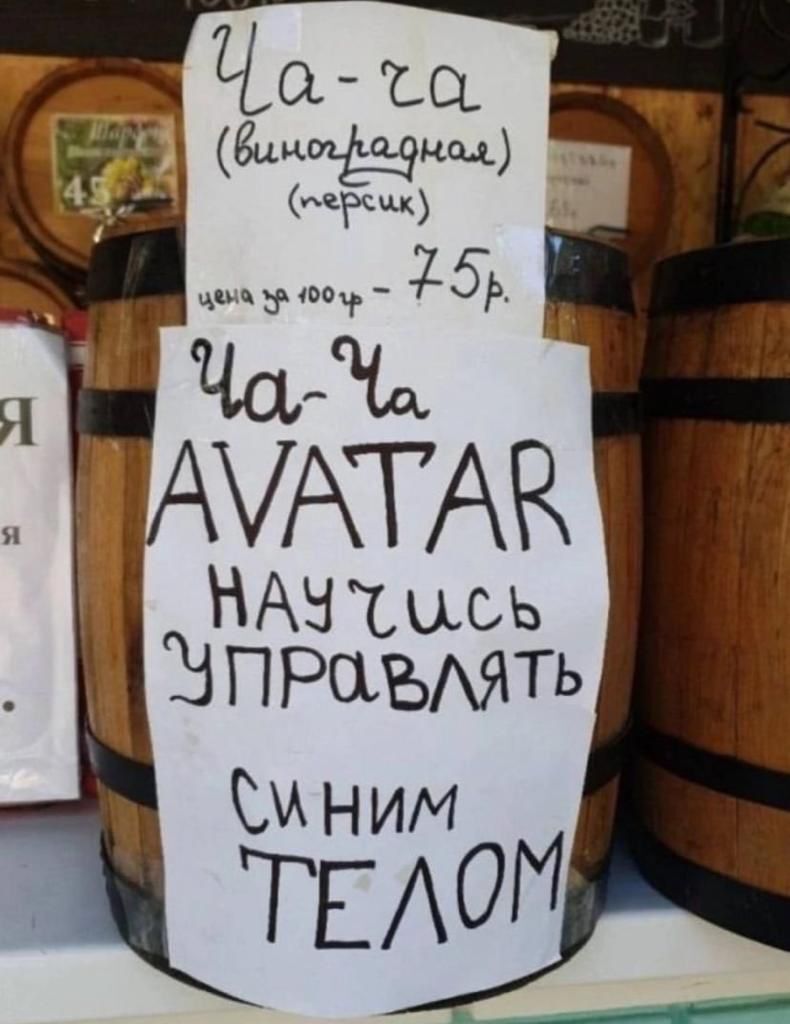 Ча-ча
(виноградная)
(персик)
цена за 100 гр - 75 р.
Ча-Ча
AVATAR
НАУЧИСЬ
УПРАВЛЯТЬ
СИНИМ
ТЕЛОМ
Я
я